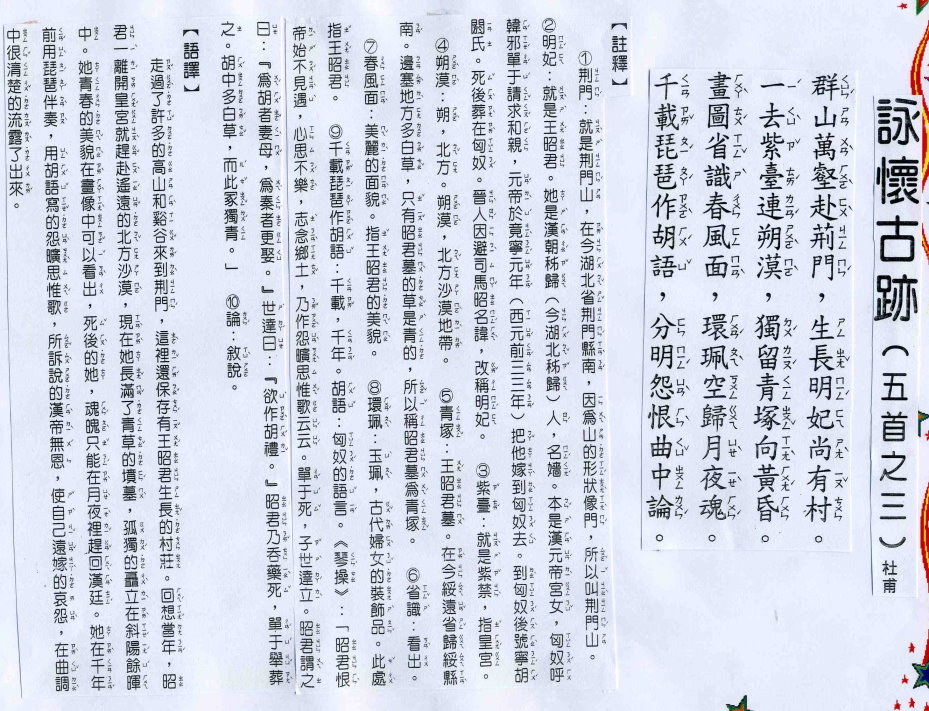 詠懷古跡（五首之三）杜甫
群山萬壑赴荊門，生長明妃尚有村。
一去紫臺連朔漠，獨留青塚向黃昏。
畫圖省識春風面，環珮空歸月夜魂。
千載琵琶作胡語，分明怨恨曲中論。
【註釋】
①荊門：就是荊門山，在今湖北省荊門縣南，因為山的形狀像門，所以叫荊門山。
②明妃：就是王昭君。她是漢朝秭歸（今湖北秭歸）人，名嬙。本是漢元帝宮女，匈奴呼
韓邪單于請求和親，元帝於竟寧元年（西元前三三年）把他嫁到匈奴去。到匈奴後號寧胡
閼氏。死後葬在匈奴。晉人因避司馬昭名諱，改稱明妃。　③紫臺：就是紫禁，指皇宮。
④朔漠：朔，北方。朔漠，北方沙漠地帶。　⑤青塚：王昭君墓。在今綏遠省歸綏縣
南。邊塞地方多白草，只有昭君墓的草是青的，所以稱昭君墓為青塚。　⑥省識：看出。
⑦春風面：美麗的面貌。指王昭君的美貌。　⑧環珮：玉珮，古代婦女的裝飾品。此處
指王昭君。　⑨千載琵琶作胡語：千載，千年。胡語：匈奴的語言。《琴操》：「昭君恨
帝始不見遇，心思不樂，志念鄉土，乃作怨曠思惟歌云云。單于死，子世達立。昭君謂之
曰：『為胡者妻母，為秦者更娶。』世達曰：『欲作胡禮。』昭君乃吞藥死，單于舉葬
之。胡中多白草，而此冢獨青。」　⑩論：敘說。
【語譯】
走過了許多的高山和谿谷來到荊門，這裡還保存有王昭君生長的村莊。回想當年，昭
君一離開皇宮就趕赴遙遠的北方沙漠，現在她長滿了青草的墳墓，孤獨的矗立在斜陽餘暉
中。她青春的美貌在畫像中可以看出，死後的她，魂魄只能在月夜裡趕回漢廷。她在千年
前用琵琶伴奏，用胡語寫的怨曠思惟歌，所訴說的漢帝無恩，使自己遠嫁的哀怨，在曲調
中很清楚的流露了出來。